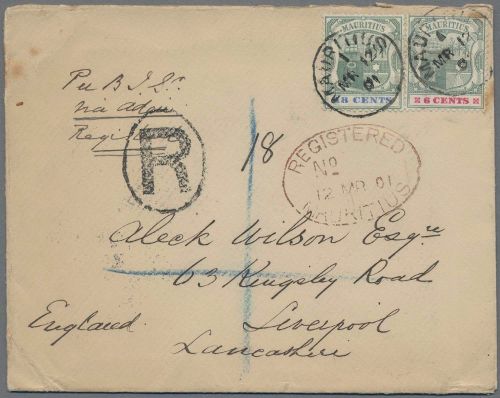 MAURITIUS MAURITIUS
MAURITIUS MAURITIUS
1 1
MR 12 MR 12
01
18 CENTS 6 CENTS
Per B I Sr
via Aden
Registered
R
18
REGISTERED
No
12 MR 01
MAURITIUS
Aleck Wilson Esqre
63 Kingsley Road
England. Liverpool
Lancashire